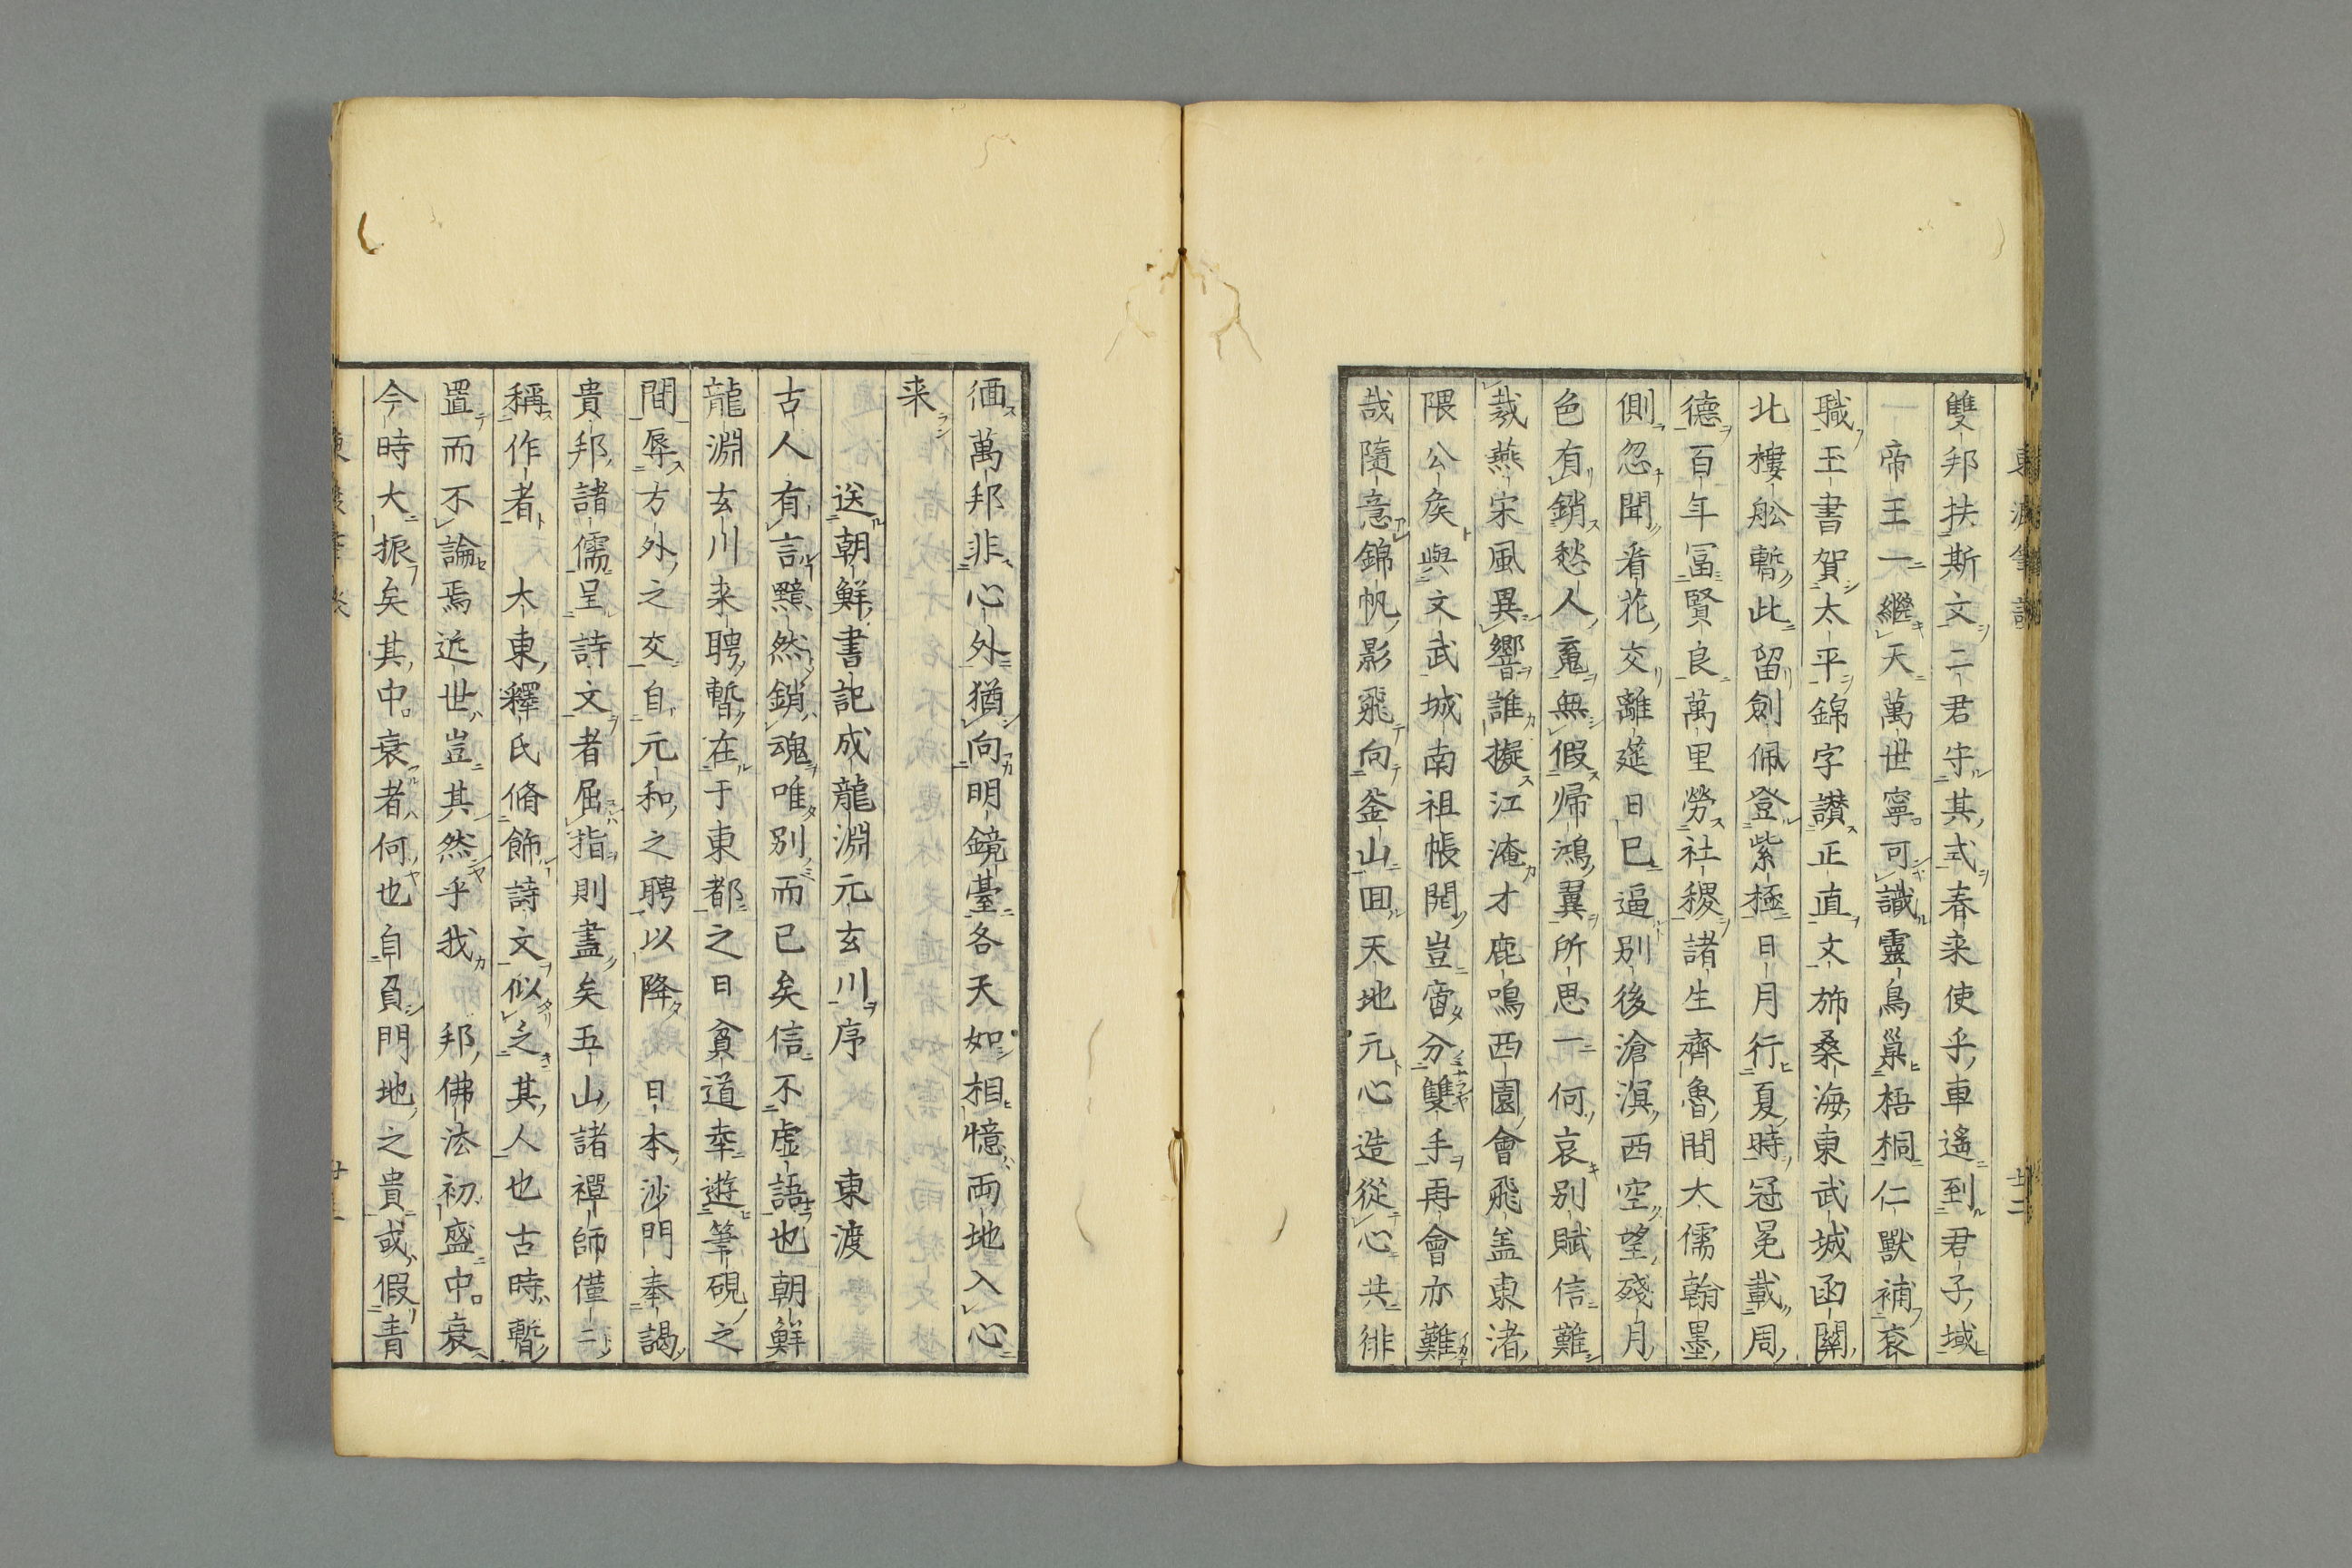 雙邦扶斯文二君守其式春来使乎車遙到君子域
帝王一繼天萬世寧可識靈鳥巢梧桐仁獸補衮
職玉書賀太平錦字讃正直文斾桑海東武城函關
北樓舩暫此留劍佩登紫極日月行夏時冠冕載周
德百年冨賢良萬里勞社稷諸生齊魯間大儒翰墨
側忽聞看花交離莚日已逼別後滄溟西空望殘月
色有銷愁人䰟無假帰鴻翼所思一何哀別賦信難
裁燕宋風異響誰擬江淹才鹿鳴西園會飛盖東渚
隈公矦與文武城南祖帳開豈啻分雙手再會亦難
哉隨意錦帆影飛向釜山囬天地元心造從心共徘
徊萬邦非心外猶向明鏡臺各天如相憶両地入心
来
送朝鮮書記成龍淵元玄川序　東渡
古人有言黯然銷魂唯別而已矣信不虚語也朝鮮
龍淵玄川来聘暫在于東都之日貧道幸遊筆硯之
間辱方外之交自元和之聘以降　日本沙門奉謁
貴邦諸儒呈詩文者屈指則盡矣五山諸禪師僅二
稱作者　大東釋氏脩飾詩文似之其人也古時暫
置而不論焉近世豈其然乎我　邦佛法初盛中衰
今時大振矣其中衰者何也自負門地之貴或假青